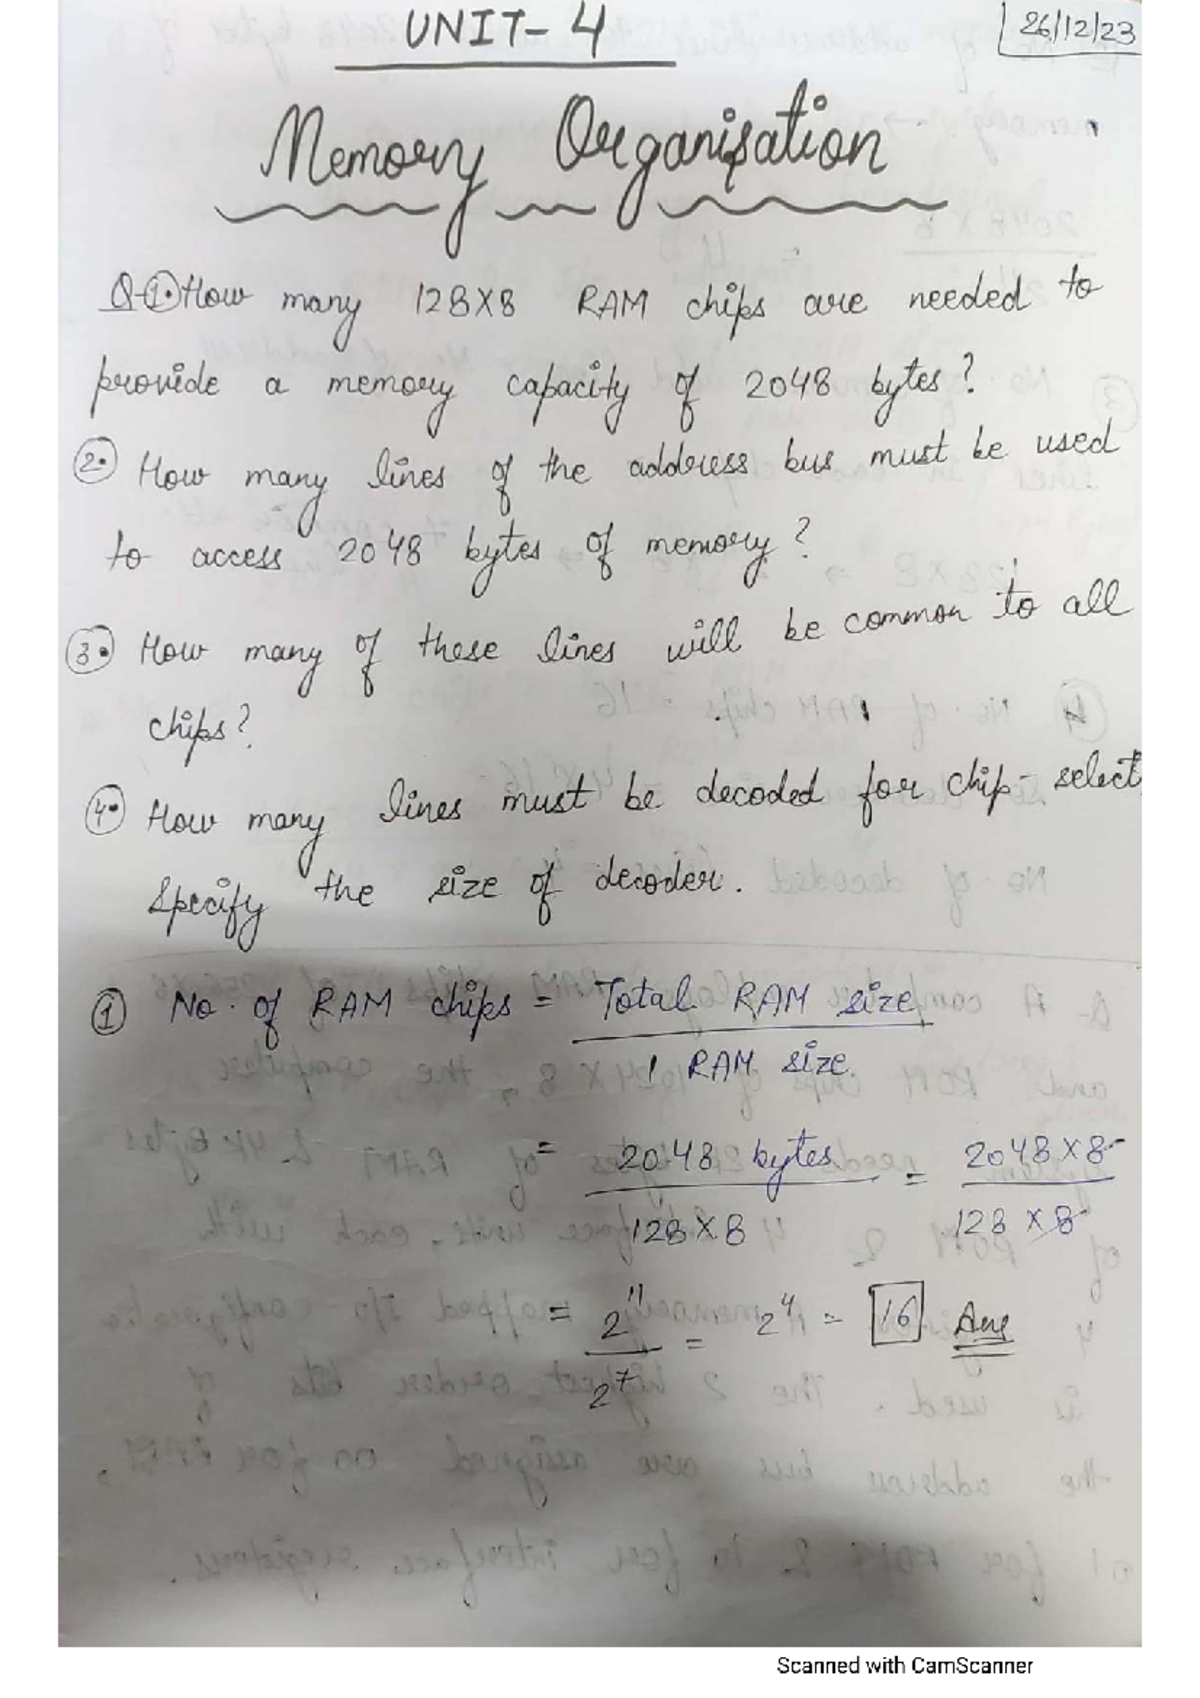 UNIT-4
26/12/23
Memory Organisation
Q-1. How many 128X8 RAM chips are needed to
provide a memory capacity of 2048 bytes?
2. How many lines of the address bus must be used
to access 2048 bytes of memory?
3. How many of these lines will be common to all
chips?
4. How many lines must be decoded for chip-select,
Specify the size of decoder.
① No. of RAM chips = Total RAM size
1 RAM size.
= 2048 bytes = 2048 X 8
128 X 8 128 X 8
= 2^11 = 2^4 = 16 Ans
2^7
Scanned with CamScanner